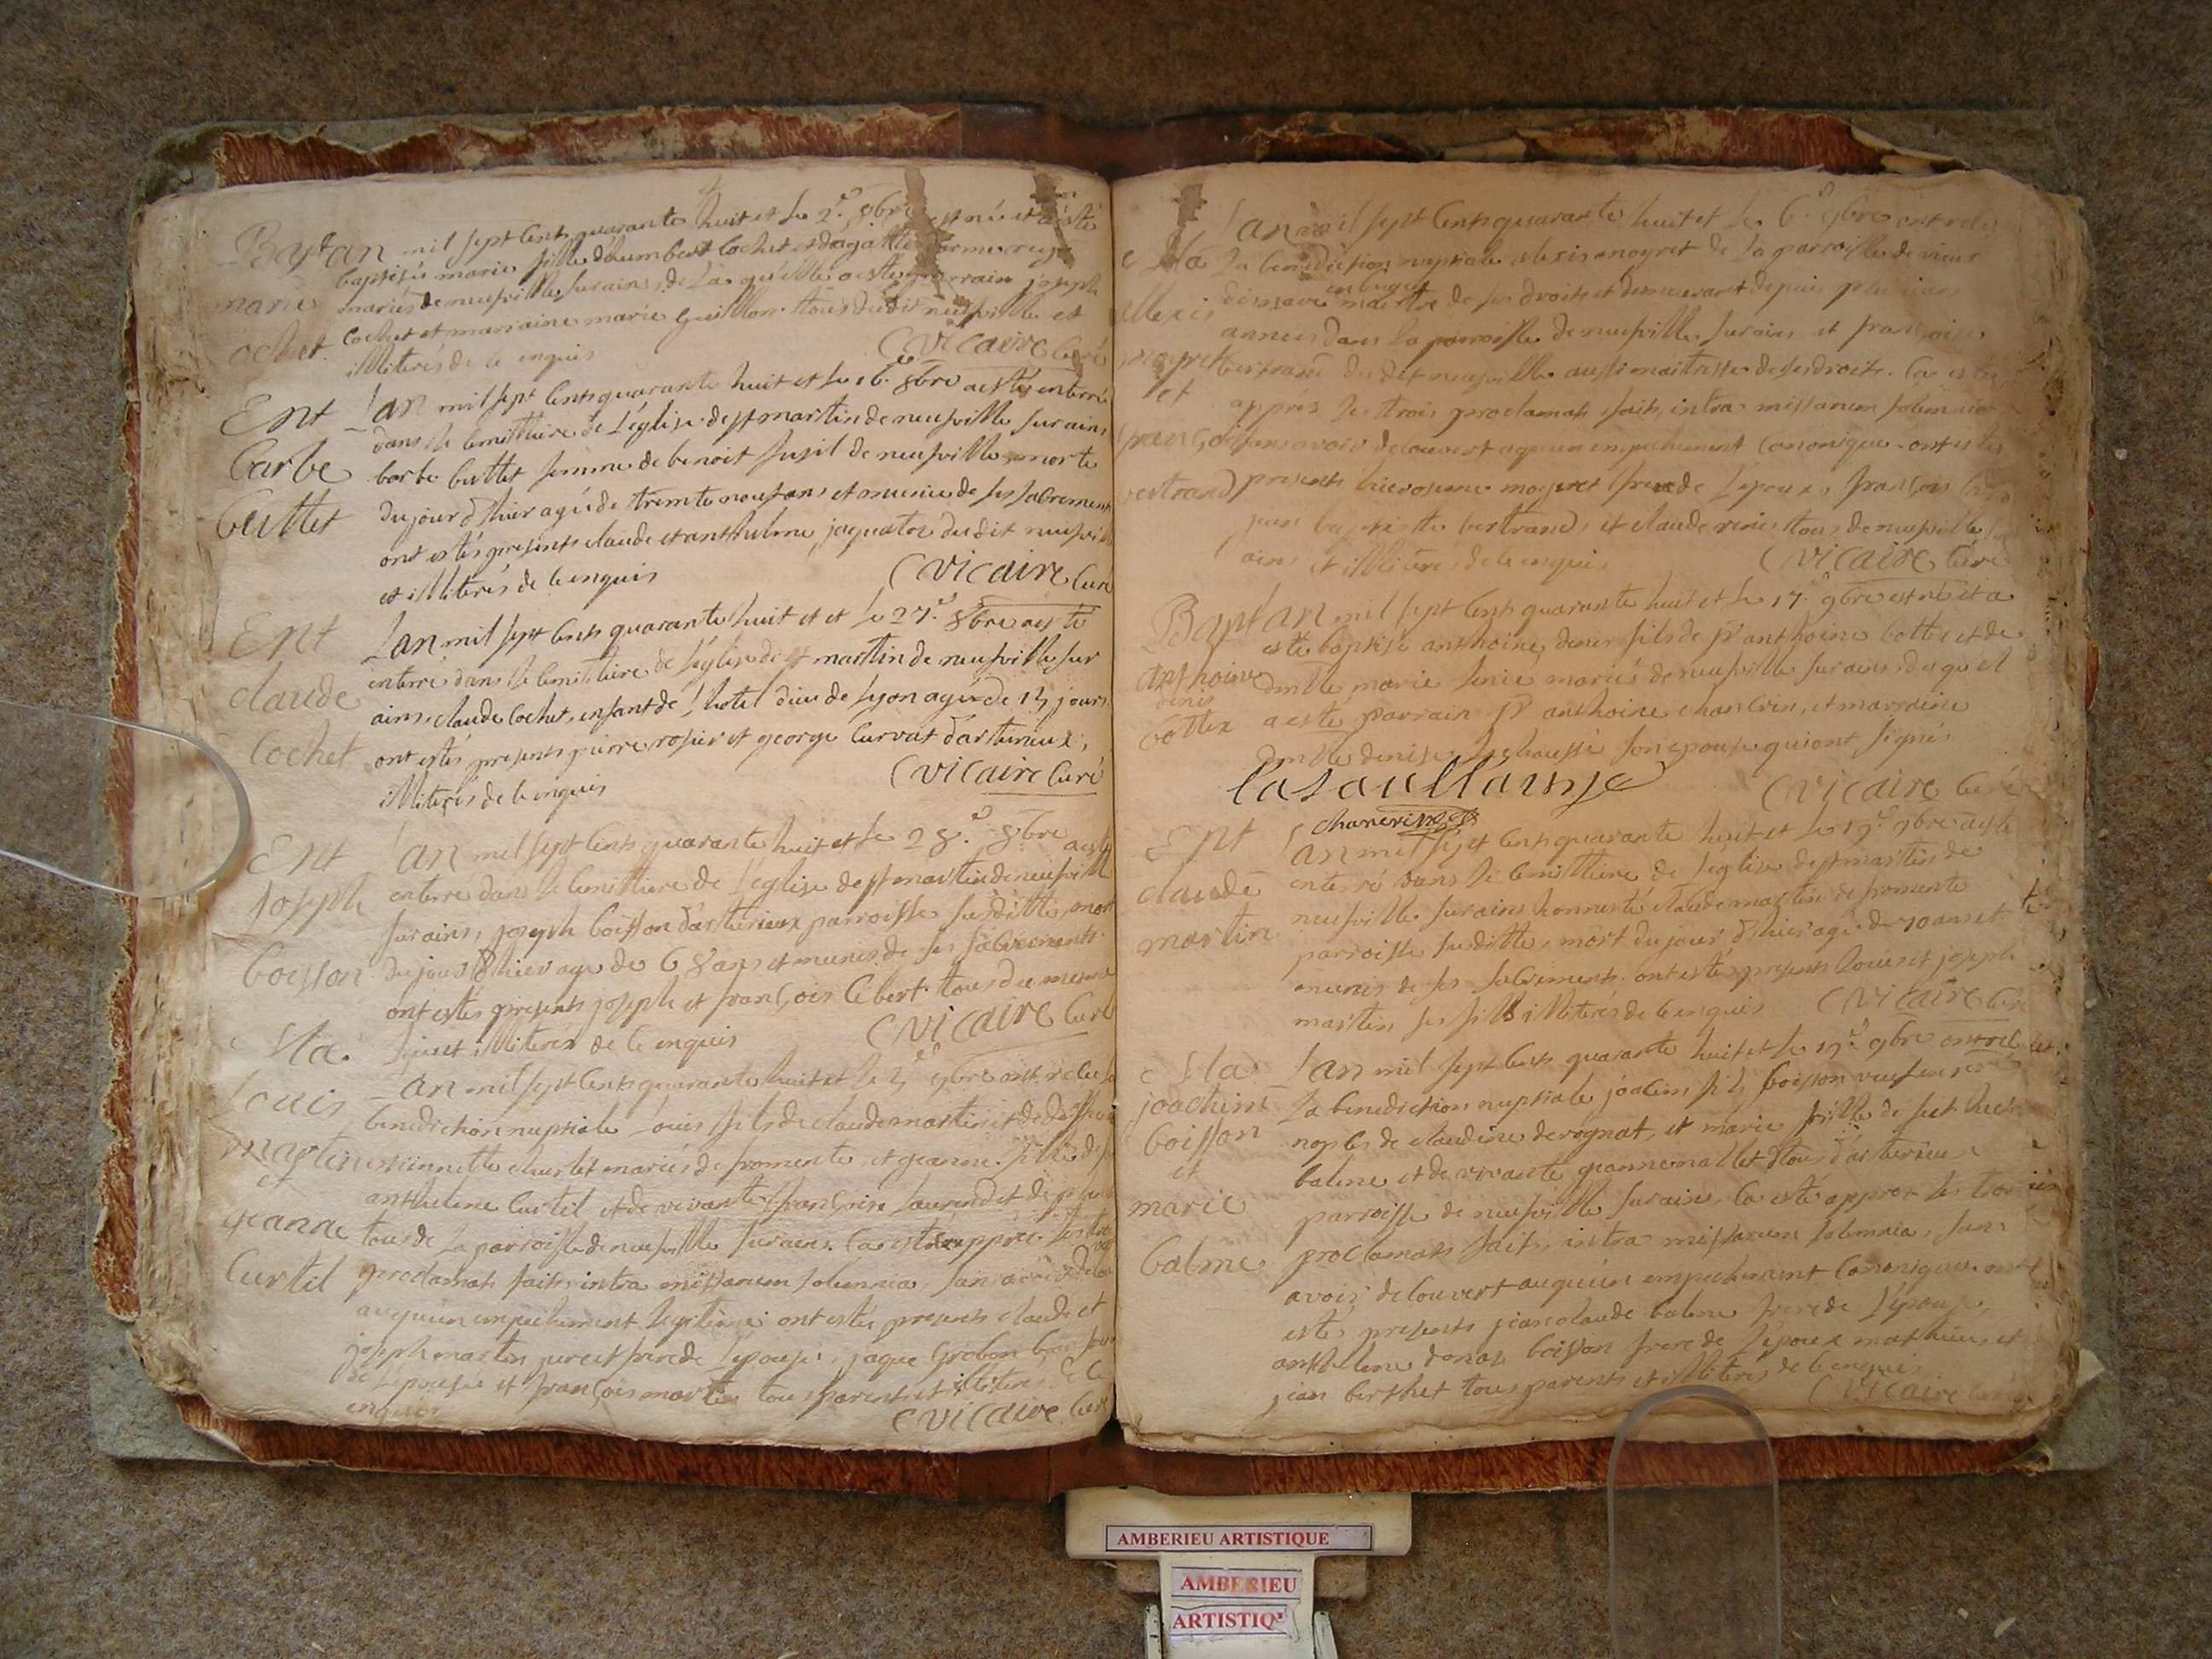 Bapt
marie
cochet
Lan mil sept cents quarante huit et le 2e 8bre est née et a esté
baptisée marie fille d'humbert cochet et d'agathe
mariés de neufville surains, de la quelle a esté parrain joseph
cochet et marraine marie guillon tous dudit neufville et
illiterés de ce enquis
Vicaire Curé
Ent
barbe
buttet
Lan mil sept cents quarante huit et le 16e 8bre a esté enterré
dans le cemittiere de l'église de st martin de neufville surains
barbe buttet femme de benoit fusil de neufville morte
du jour d'hier agée de trente neuf ans et munie de ses sacrements
ont estés presents claude et anthelme jaquator dudit neufville
et illiterés de ce enquis
Vicaire Curé
Ent
claude
Cochet
Lan mil sept cents quarante huit et et le 27e 8bre a esté
enterré dans le cemittiere de l'église de st martin de neufville sur
ains, claude cochet, enfant de l'hotel dieu de lyon agé de 15 jours
ont estés presents pierre rosier et george curvat d'asterieux,
illiterés de ce enquis
Vicaire Curé
Ent
Joseph
boisson
Lan mil sept cents quarante huit et le 28e 8bre a esté
enterré dans le cemittiere de l'église de st martin de neufville
surains, joseph boisson d'asterieux parroisse susditte, mort
du jour d'hier agé de 68 ans et munis de ses sacrements
ont estés presents joseph et françois Cibert tous du mesme
lieu et illiterés de ce enquis
Vicaire Curé
Ma
Louis
martin
et
jeanne
Curtil
Lan mil sept cents quarante huit et le 5e 9bre ont receu la
benediction nuptiale Louis fils de claude martin et de
mariés de fromente, et jeanne fille de
anthelme Curtil et de vivante françoise
tous de la parroisse de neufville surains. Ca esté apprés les trois
proclamats faits intra missarum solemnia, sans avoir
auqueun empechement legitime ont estés presents claude et
joseph martin pere et frere de l'epoux, jaque Grobon beau frere
de l'epouse et françois martin tous parents et illiterés de ce
enquis
Vicaire Curé
Ma
Allexis
mogret
et
françoise
bertrand
Lan mil sept cents quarante huit et le 6e 9bre ont receu
la benediction nuptiale alexis mogret de la parroisse de vieux
en bugey maitre de ses droits et demeurant depuis plusieurs
années dans la parroisse de neufville surains et françoise
bertrand du dit neufville aussi maitresse de ses droits. Ca esté
apprés les trois proclamats faits intra missarum solemnia
sans avoir decouvert auqueun empechement canonique ont estés
presents hierosme mogret frere de l'epoux, françois
jean baptiste bertrand, et claude tous de neufville sur
ains et illiterés de ce enquis
Vicaire Curé
Bapt
anthoine
denis
bottex
Lan mil sept cents quarante huit et le 17e 9bre est né et a
esté baptisé anthoine denis fils de sr anthoine bottex et de
dmlle marie mariés de neufville surains du quel
a esté parrain sr anthoine chancrin, et marraine
dmlle denise son epouse qui ont signés
Vicaire Curé
Ent
claude
martin
Lan mil sept cents quarante huit et le 19e 9bre a esté
enterré dans le cemittiere de l'eglise de st martin de
neufville surains honneste claude martin de fromente
parroisse susditte, mort du jour d'hier agé de 70 ans et
munis de ses sacrements. ont estés presents Louis et joseph
martin ses fils illiterés de ce enquis
Vicaire Curé
Ma
joachim
boisson
et
marie
balme
Lan mil sept cents quarante huit et le 19e 9bre ont receu
La benediction nuptiale joachim fils boisson veuf en
nopces de claudine derognat, et marie fille de feu
balme et de vivante jeanne mallet tous d'asterieux
parroisse de neufville surains, Ca esté apprés les trois
proclamats faits, intra missarum solemnia, sans
avoir decouvert auqueun empechement canonique. ont
estés presents jean claude balme frere de l'epouse,
anthelme donat boisson frere de l'epoux mathieu, et
jean berthet tous parents et illiterés de ce enquis
Vicaire Curé
AMBERIEU ARTISTIQUE
AMBERIEU
ARTISTIQ